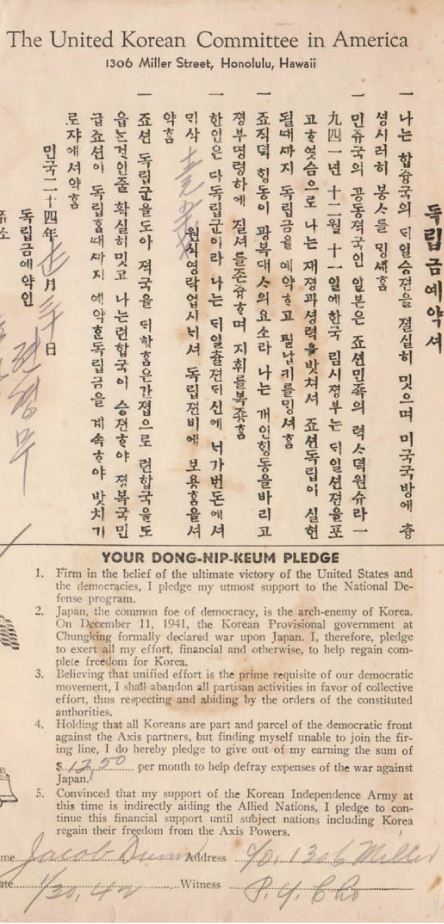 The United Korean Committee in America
1306 Miller Street, Honolulu, Hawaii
독립금예약셔
一 나는 합즁국의 ᄃᆡ일승젼을 졀실히 밋으며 미국국방에 츙
셩시러히 봉ᄉᆞ를 ᄆᆡᆼ셰홈
一 민쥬국의 공동젹국인 일본은 죠션민족의 력ᄉᆞ뎍원슈라 一
九四一년 十二월 十一일에한국 림시졍부는 ᄃᆡ일션젼을포
고ᄒᆞ엿슴으로 나는 재졍과셩력을밧쳐셔 죠션독립이 실현
될때까지 독립금을 예약ᄒᆞ고 필납키를ᄆᆡᆼ셔홈
一 죠직뎍 ᄒᆡᆼ동이 광복대ᄉᆞ의요소라 나는 개인ᄒᆡᆼ동을바리고
졍부명령하에 질셔를존슝ᄒᆞ며 지휘를복죵홈
一 한인은 다독립군이라 나는 ᄃᆡ일츌젼ᄃᆡ신에 ᄂᆡ가번돈에셔
ᄆᆡ삭 원식영락업시ᄂᆡ셔 독립젼비에 보용홈을셔
약홈
一 죠션 독립군을도아 젹국을 ᄃᆡ학홈은간졉으로 련합국을도
읍는것인줄 확실히밋고 나는련합국이 승젼ᄒᆞ야 졍복국민
급죠션이 독립ᄒᆞᆯ때까지 예약ᄒᆞᆫ독립금을 계속ᄒᆞ야 밧치기
로쟈에셔약홈
민국二十四年 月三十日
독립금예약인 전경무
YOUR DONG-NIP-KEUM PLEDGE
1. Firm in the belief of the ultimate victory of the United States and
the democracies, I pledge my utmost support to the National De-
fense program.
2. Japan, the common foe of democracy, is the arch-enemy of Korea.
On December 11, 1941, the Korean Provisional government at
Chungking formally declared war upon Japan. I, therefore, pledge
to exert all my effort, financial and otherwise, to help regain com-
plete freedom for Korea.
3. Believing that unified effort is the prime requisite of our democratic
movement, I shall abandon all partisan activities in favor of collective
effort, thus respecting and abiding by the orders of the constituted
authorities.
4. Holding that all Koreans are part and parcel of the democratic front
against the Axis partners, but finding myself unable to join the fir-
ing line, I do hereby pledge to give out of my earning the sum of
$ 12.50 per month to help defray expenses of the war against
Japan.
5. Convinced that my support of the Korean Independence Army at
this time is indirectly aiding the Allied Nations, I pledge to con-
tinue this financial support until subject nations including Korea
regain their freedom from the Axis Powers.
me Jacob Dunn Address c/o 1306 Miller
ate 1/30.42 Witness P.Y. Cho